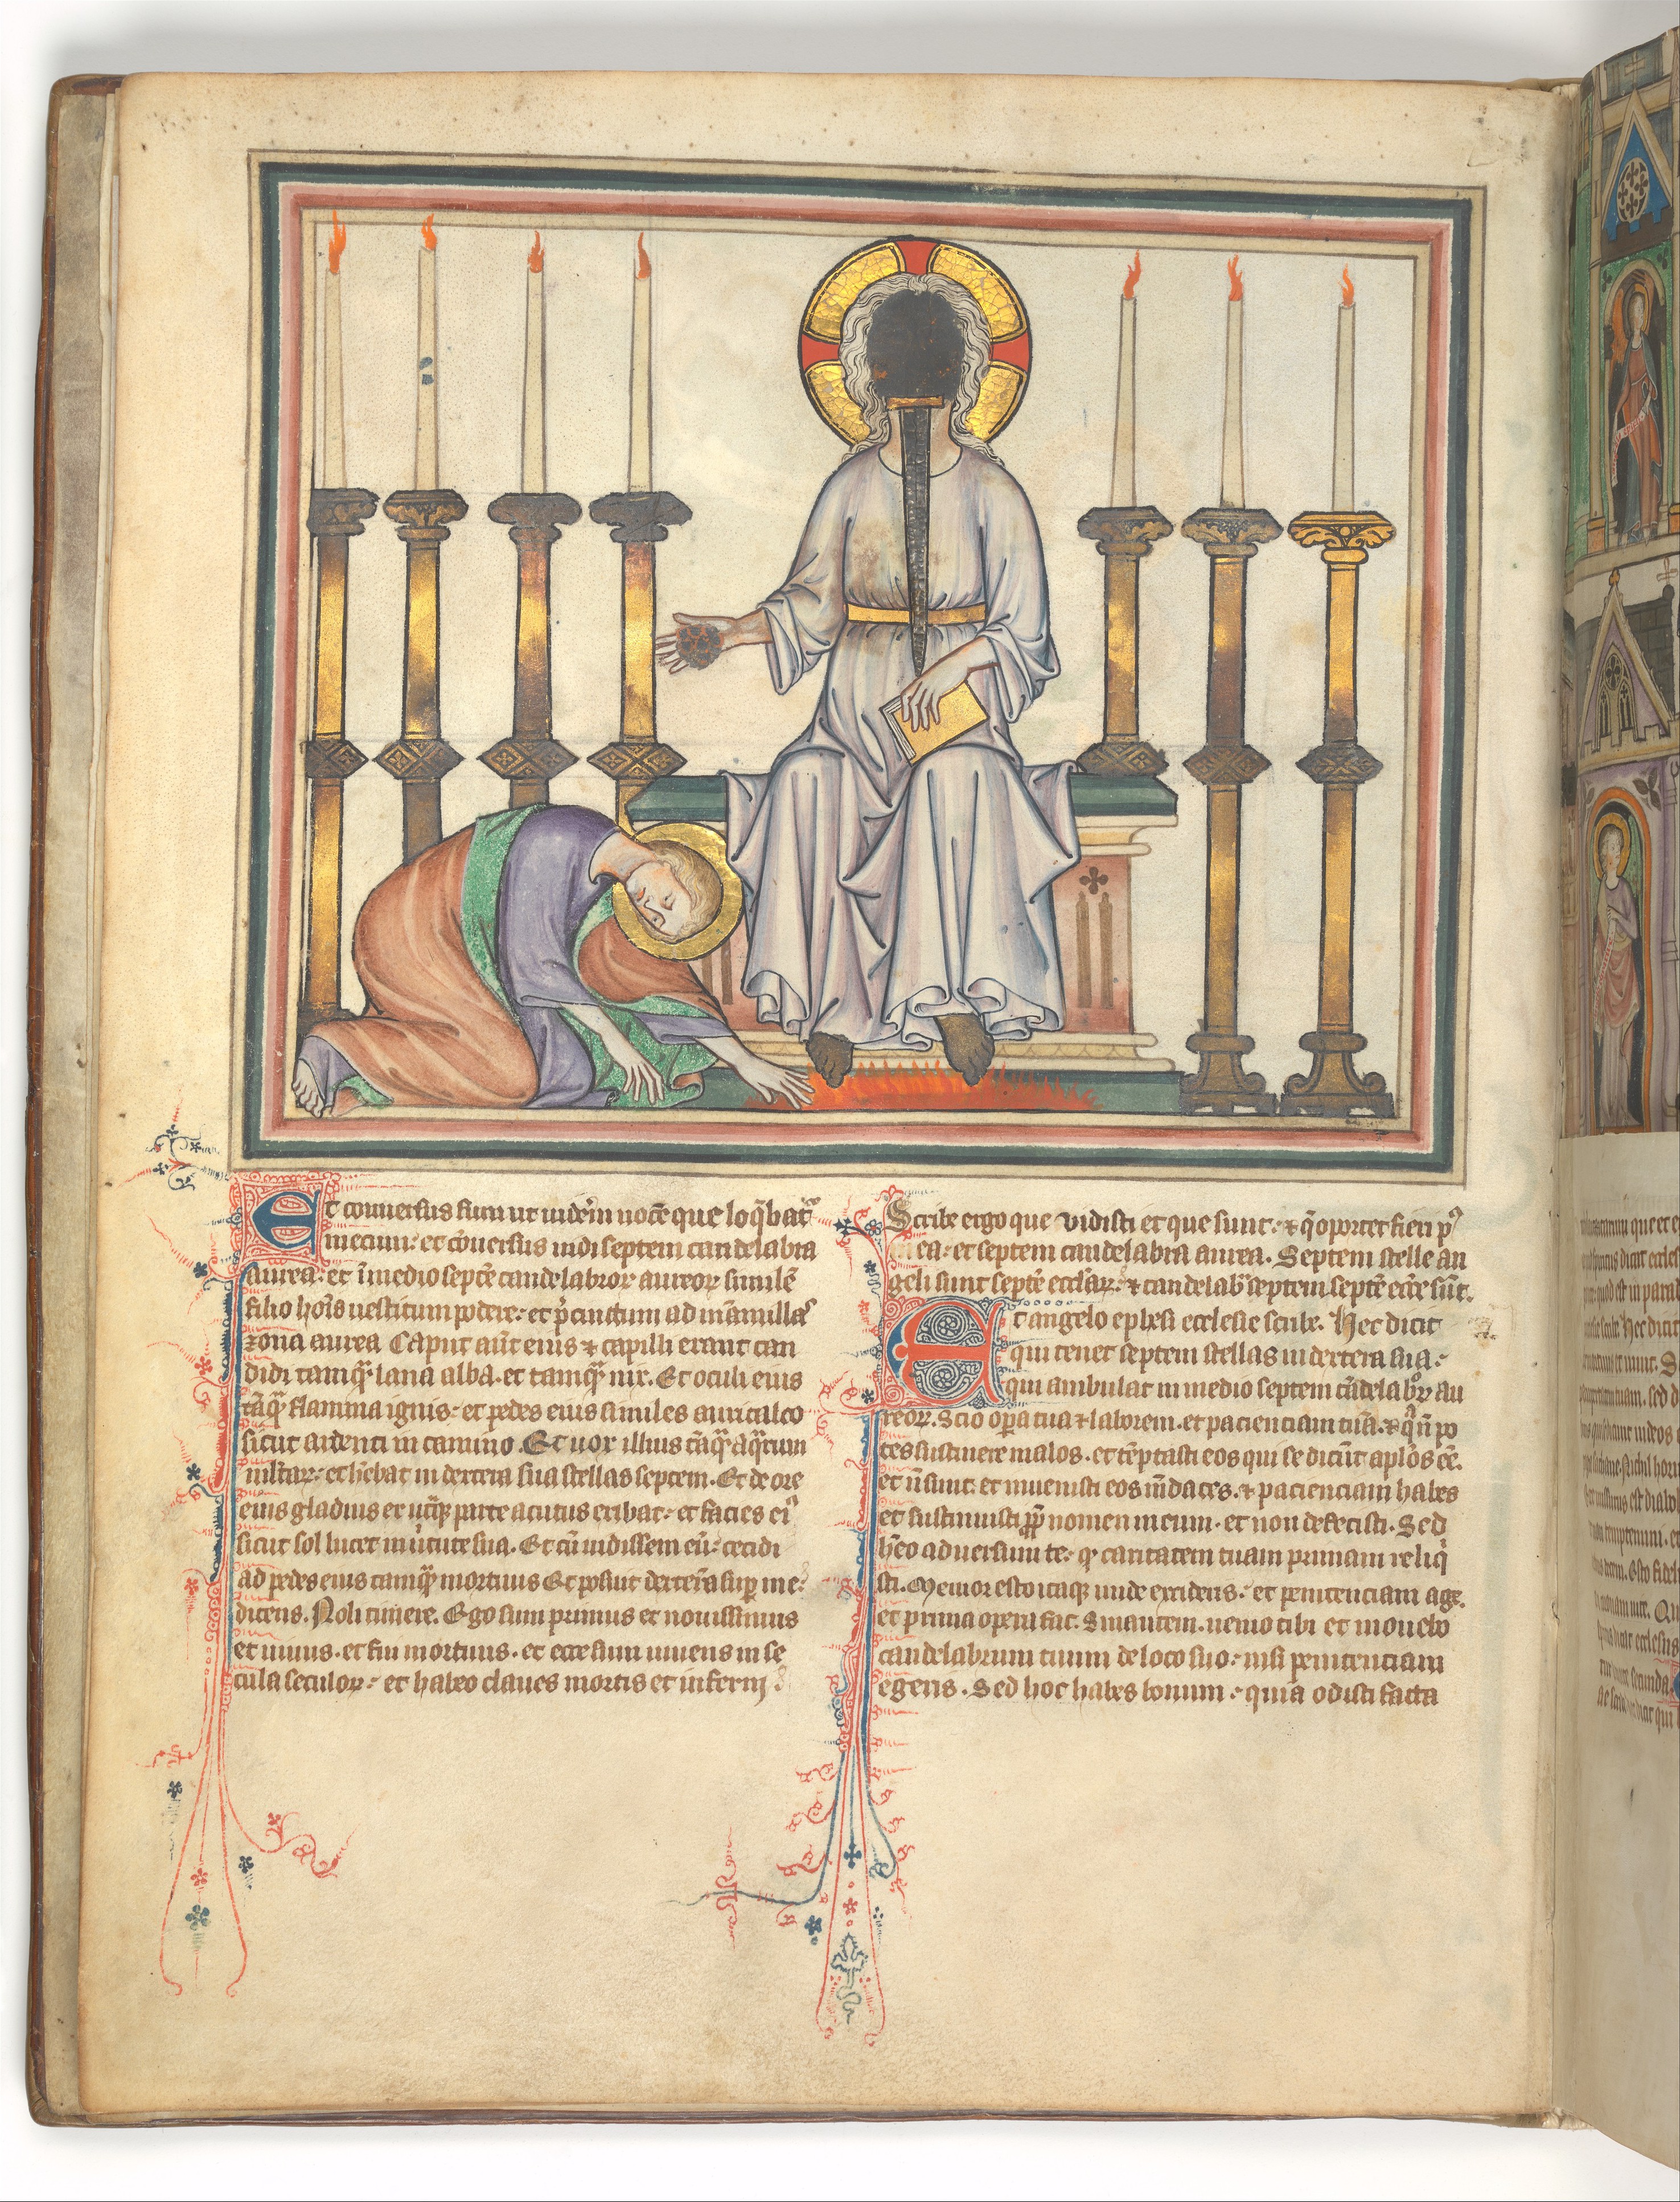 Et conuersus sum ut uideẽm uocẽ que loq̃batᷣ
mecum: et cõuersus uidi septem candelabra
aurea: et ĩ medio septẽ candelabroꝝ aureoꝝ similẽ
filio hoĩs uestitum podere: et p̃cinctum ad mãmillas
zona aurea Caput aũt eius ⁊ capilli erant can
didi tamq̃ʒ lana alba. et tamq̃ʒ nix. Et oculi eius
tãq̃ʒ flamma ignis: et pedes eius similes auricalco
sicut ardenti in camino. Et uox illius tãq̃ʒ aq̃rum
mĩtaꝝ: et hẽbat in dextera sua stellas septem. Et de ore
eius gladius ex utq̃ʒ parte acutus exibat: et facies eiꝰ
sicut sol lucet in uirtute sua. Et cũ uidissem eũ: cecidi
ad pedes eius tamq̃ʒ mortuus Et posuit dexterã sup̱ me:
dicens. Noli timere. Ego sum primus et nouissimus
et uiuus. et fui mortuus. et ecce sum uiuens in se
cula seculoꝝ: et habeo claues mortis et inferni
Scribe ergo que vidisti et que sunt: ⁊ q̃ oportet fieri pꝰ
ea: et septem candelabra aurea. Septem stelle an
geli sunt septẽ eccl̃aꝝ: ⁊ candelab̃ septem septẽ ecc̃e sũt.
Et angelo ephesi ecclesie scribe. Hec dicit
qui tenet septem stellas in dextera sua:
qui ambulat in medio septem cãdelab̃oꝝ au
reoꝝ. Scio op̱a tua ⁊ laborem. et pacienciam tuã. ⁊ q̃ ñ po
tes sustinere malos. et tẽptasti eos qui se dicũt apl̃os eẽ.
et ñ sunt: et inuenisti eos mẽdaces. ⁊ pacienciam habes
et sustinuisti p̱p̱ nomen meum. et non defecisti. Sed
hẽo aduersum te: q̱ caritatem tuam primam reliq̃
sti. Memor esto itaqʒ unde excideris: et penitenciam age.
et prima opera fac. Sin autem. uenio tibi et mouebo
candelabrum tuum de loco suo: nisi penitenciam
egeris. Sed hoc habes bonum: quia odisti facta